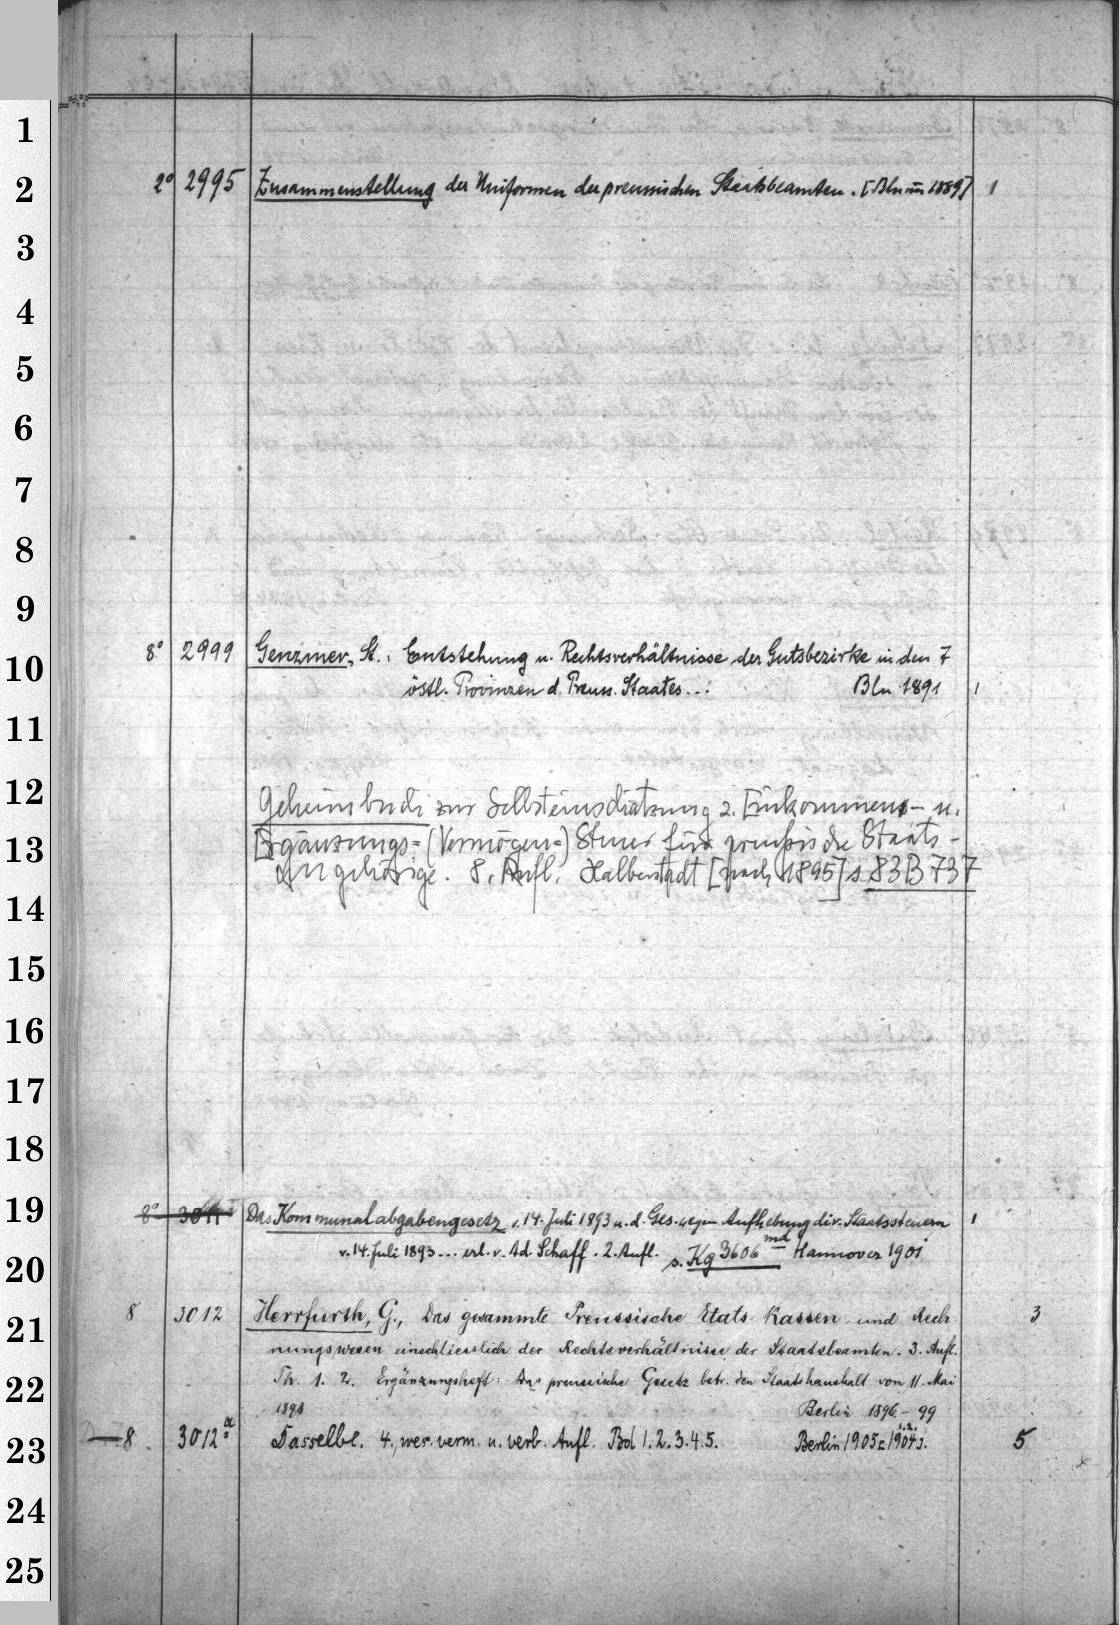 1
2
3
4
5
6
7
8
9
10
11
12
13
14
15
16
17
18
19
20
21
22
23
24
25
2° 2995 Zusammenstellung der Uniformen der preussischen Staatsbeamten. [Bln 1889] 1
8° 2999 Genzmer, St.: Entstehung u. Rechtsverhältnisse der Gutsbezirke in den 7
östl. Provinzen d. Preuss. Staates... Bln 1891 1
Geheimbuch zur Selbsteinschätzung z. Einkommens- u.
Ergänzungs=(Vermögen=) Steuer für preußische Staats-
Angehörige. 8. Aufl. Halberstadt [nach 1895] s. 83 B 737
8° 3011 Das Kommunalabgabengesetz v. 14. Juli 1893 u. d. Ges. wegen Aufhebung dir. Staatssteuern 1
v. 14. Juli 1893... erl. v. Ad. Schaff. 2. Aufl. s. Kg 3606 md Hannover 1901
8 3012 Herrfurth, G., Das gesammte Preussische Etats- Kassen und Rech 3
nungswesen einschliesslich der Rechtsverhältnisse der Staatsbeamten. 3. Aufl.
Th. 1. 2. Ergänzungsheft: Das preussische Gesetz betr. den Staatshaushalt vom 11. Mai
1898 Berlin 1896-99
8 3012 a Dasselbe. 4, wes. verm. u. verb. Aufl. Bd 1. 2. 3. 4. 5. Berlin 1905 5